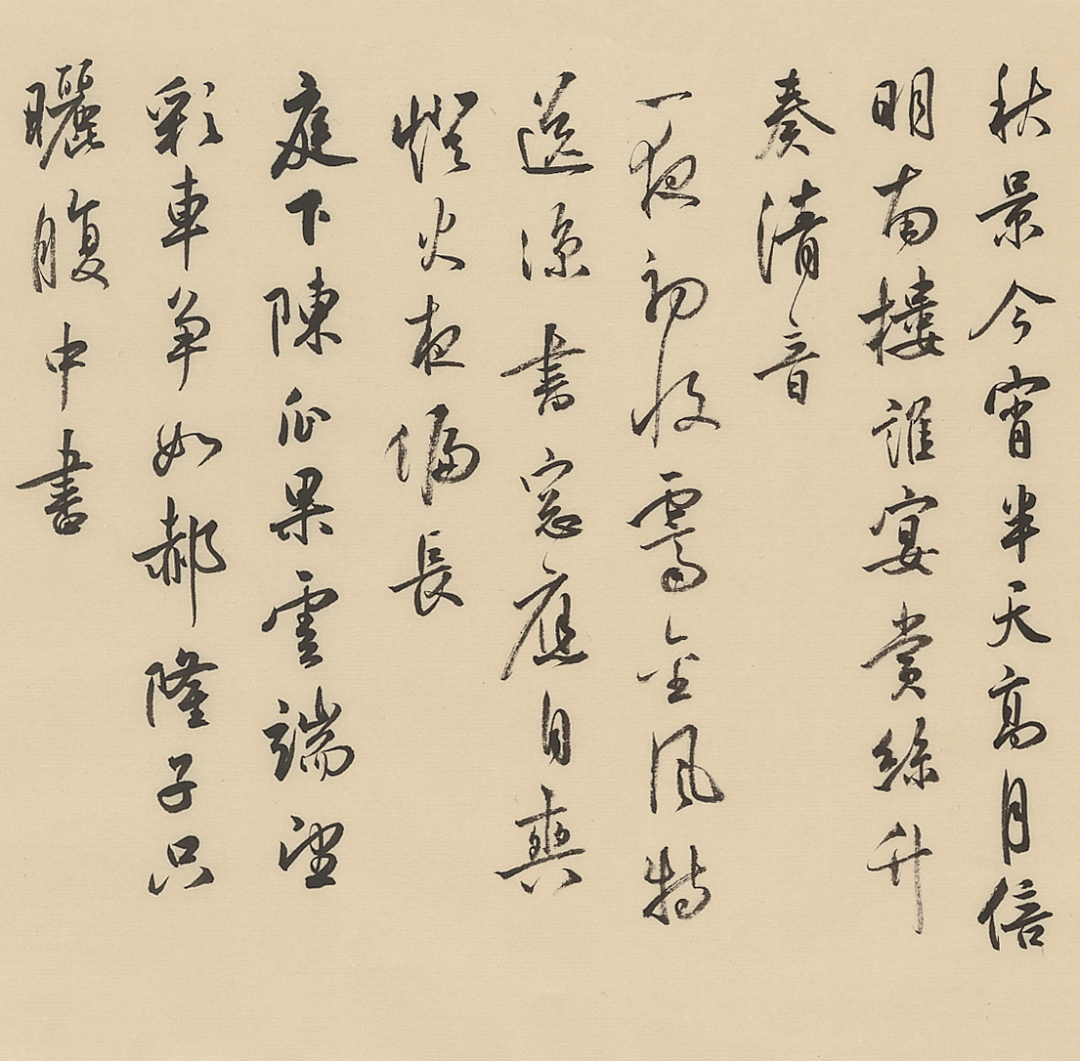 秋景今宵半天高月倍
明南樓誰宴賞絲竹
奏清音
一夜初收霽金風特
送涼書窗應自爽
燈火夜偏長
庭下陳瓜果雲端望
彩車爭如郝隆子只
曬腹中書